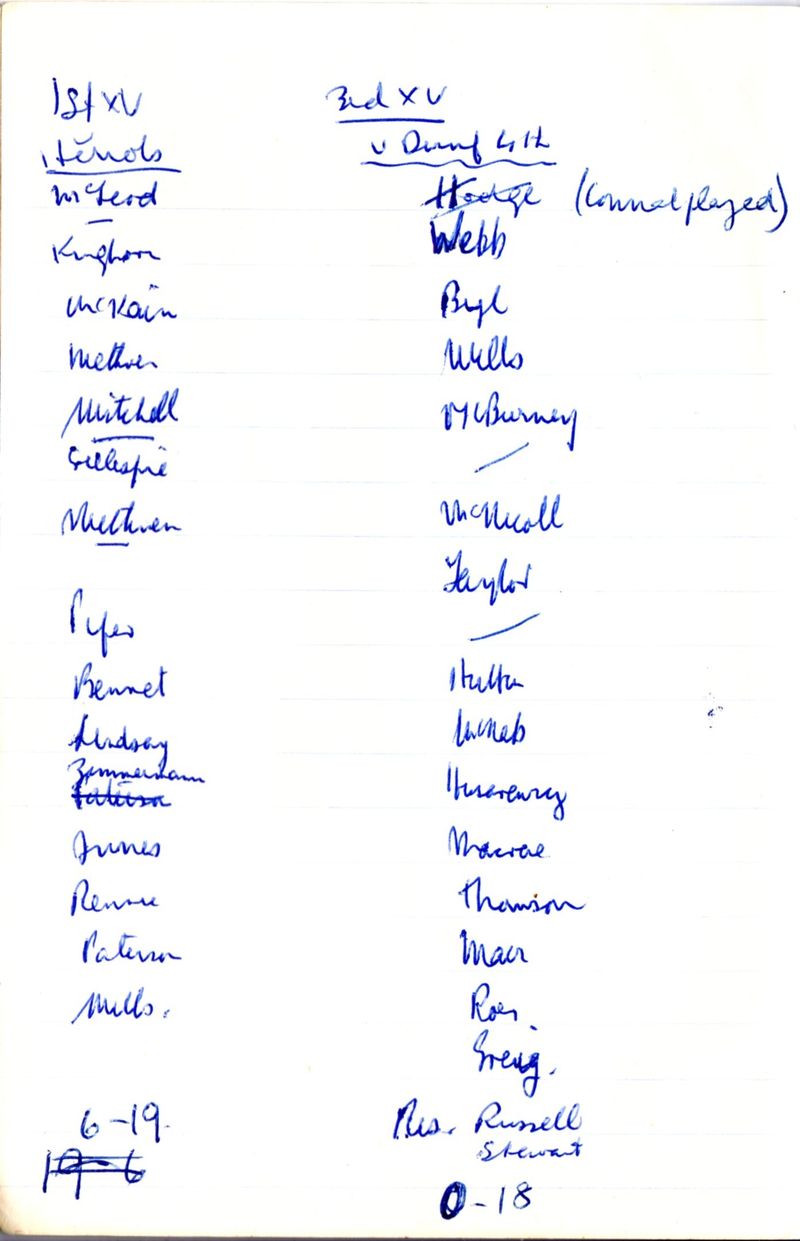 1st XV
Heriots
McLeod
Kinghorn
McKain
Methven
Mitchell
Gillespie
Methven
Pyfer
Bennet
Lindsay
Zimmermann
Paterson
Innes
Rennie
Paterson
Mills.
6-19.
19-6
3rd XV
v Dunf 4th
Hodge (Connel played)
Webb
Wills
McBurney
McNicoll
Taylor
Hutton
McNab
Macrae
Thomson
Mair
Ross.
Greig.
Res. Russell
Stewart
0-18